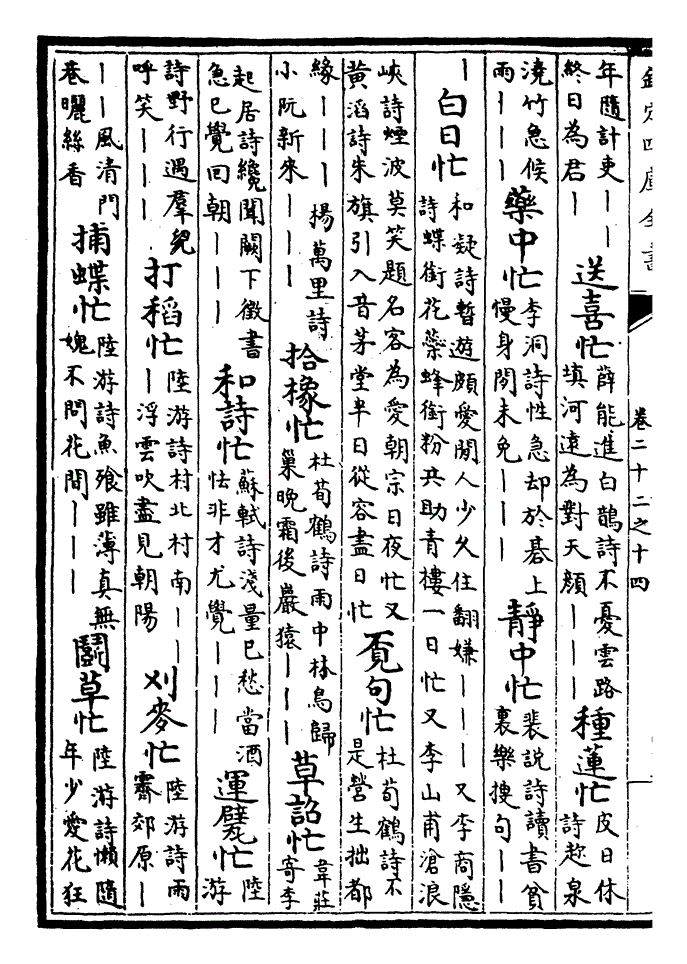 欽定四庫全書 卷二十二之十四
年隨計吏――終日為君― 送喜忙 薛能進白鵲詩不憂雲路填河遠為對天顔――― 種蓮忙 皮日休詩趂泉
澆竹急候雨――― 藥中忙 李洞詩性急却於棊上慢身閒未免――― 靜中忙 裴説詩讀書貧裏樂搜句――
― 白日忙 和凝詩暫遊頗愛閒人少久住翻嫌―――又李商隱詩蝶銜花蘂蜂銜粉共助青樓一日忙又李山甫滄浪
峽詩煙波莫笑題名客為愛朝宗日夜忙又黄滔詩朱旗引入昔茅堂半日從容盡日忙 覔句忙 杜荀鶴詩不是營生拙都
緣――― 楊萬里詩小阮新來――― 拾橡忙 杜荀鶴詩雨中林鳥歸巢晚霜後巖猿――― 草詔忙 韋莊寄李
起居詩纔聞闕下徵書急已覺回朝――― 和詩忙 蘇軾詩淺量已愁當酒怯非才尤覺――― 運甓忙 陸游
詩野行遇羣兒呼笑――― 打稻忙 陸游詩村北村南―――浮雲吹盡見朝陽 刈麥忙 陸游詩雨霽郊原―
――風清門巷曬絲香 捕蝶忙 陸游詩魚飱雖薄真無媿不問花間――― 鬬草忙 陸游詩懶隨年少愛花狂